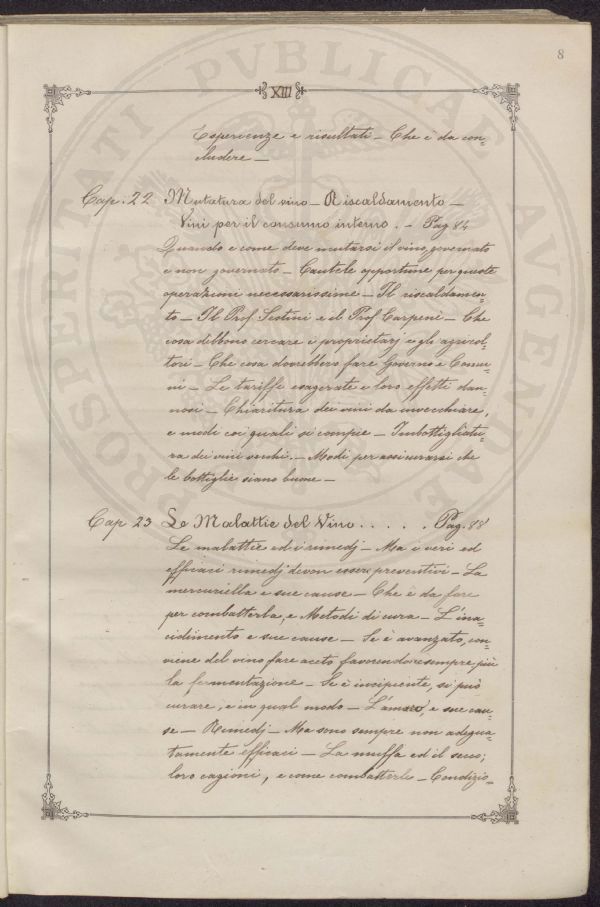 8
XIII
Esperienze e risultati — Che è da con=
cludere —
Cap. 22 Mutatura del vino — Riscaldamento —
Vini per il consumo interno. — Pag. 84
Quando e come deve mutarsi il vino, governato
e non governato — Cautele opportune per queste
operazioni necessarissime — Il riscaldamen=
to — Il Prof. Sestini e il Prof. Carpeni — Che
cosa debbono cercare i proprietarj e gli agricol=
tori — Che cosa dovrebbero fare Governo e Comu=
ni — Le tariffe esagerate e loro effetti dan=
nosi — Chiaritura dei vini da invecchiare,
e modi coi quali si compie — Imbottigliatu=
ra dei vini vecchi. — Modi per assicurarsi che
le bottiglie siano buone —
Cap. 23 Le Malattie del Vino . . . . . Pag. 88
Le malattie ed i rimedj — Ma i veri ed
efficaci rimedj devon essere preventivi — La
mercuriella e sue cause — Che è da fare
per combatterla, e Metodi di cura — L'ina=
cidimento e sue cause — Se è avanzato, con=
viene del vino fare aceto favorendone sempre più
la fermentazione — Se è incipiente, si può
curare, e in qual modo — L'amaro, e sue cau=
se — Rimedj — Ma sono sempre non adegua=
tamente efficaci — La muffa ed il secco;
loro cagioni, e come combatterle — Condizio=
PROSPERITATI PVBLICAE AVGENDAE